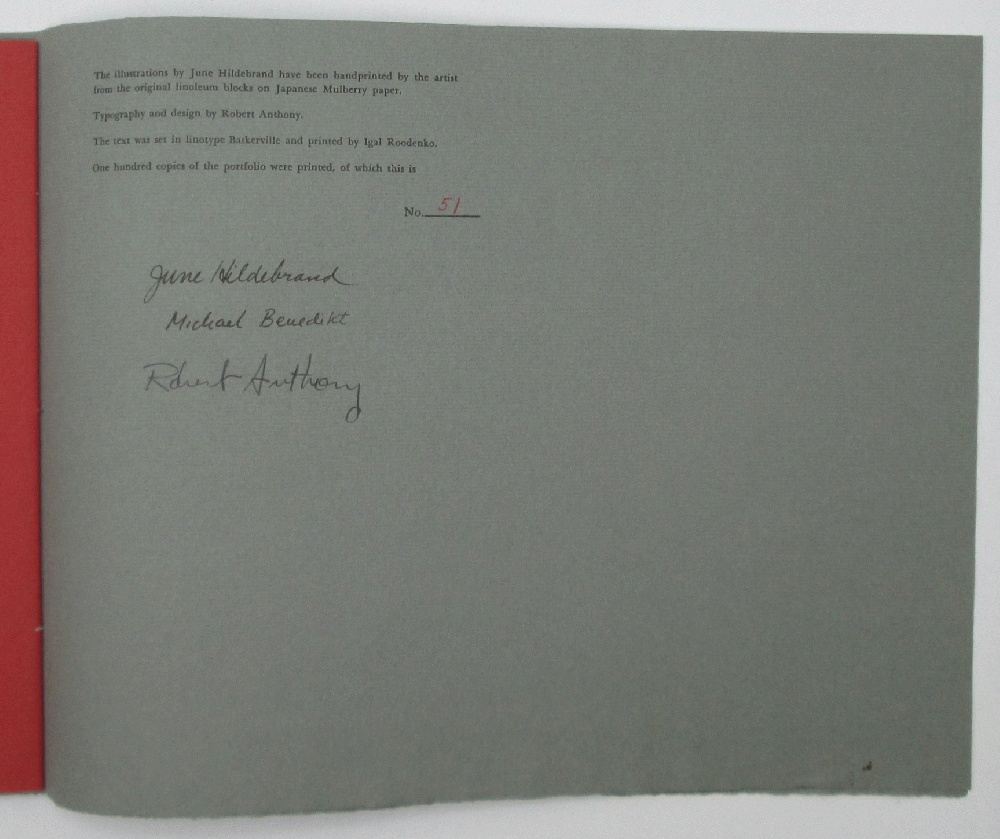 The illustrations by June Hildebrand have been handprinted by the artist
from the original linoleum blocks on Japanese Mulberry paper.
Typography and design by Robert Anthony.
The text was set in linotype Baskerville and printed by Igal Roodenko.
One hundred copies of the portfolio were printed, of which this is
No. 51
June Hildebrand
Michael Benedikt
Robert Anthony